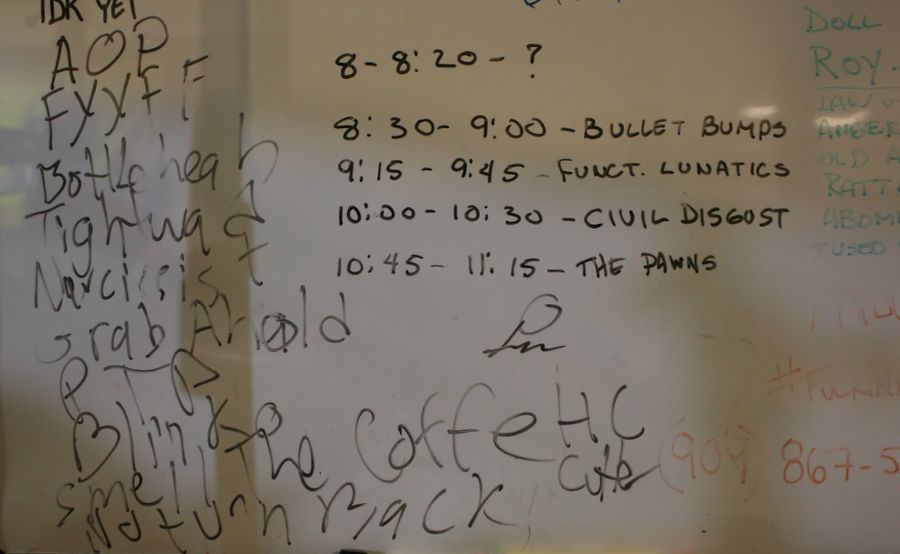 IDK YET
AOP
FYYFF
Bottlehead
Tightwad
Narcissist
Grab Ahold
PTP
Blind The
Smell
No turn Back
8 - 8:20 - ?
8:30 - 9:00 - BULLET BUMPS
9:15 - 9:45 - FUNCT. LUNATICS
10:00 - 10:30 - CIVIL DISGUST
10:45 - 11:15 - THE PAWNS
Coffee HC
Cute
(909) 867-5
DOLL
ROY
LAW
ANGER
OLD
RATT
ABOM
TUSED